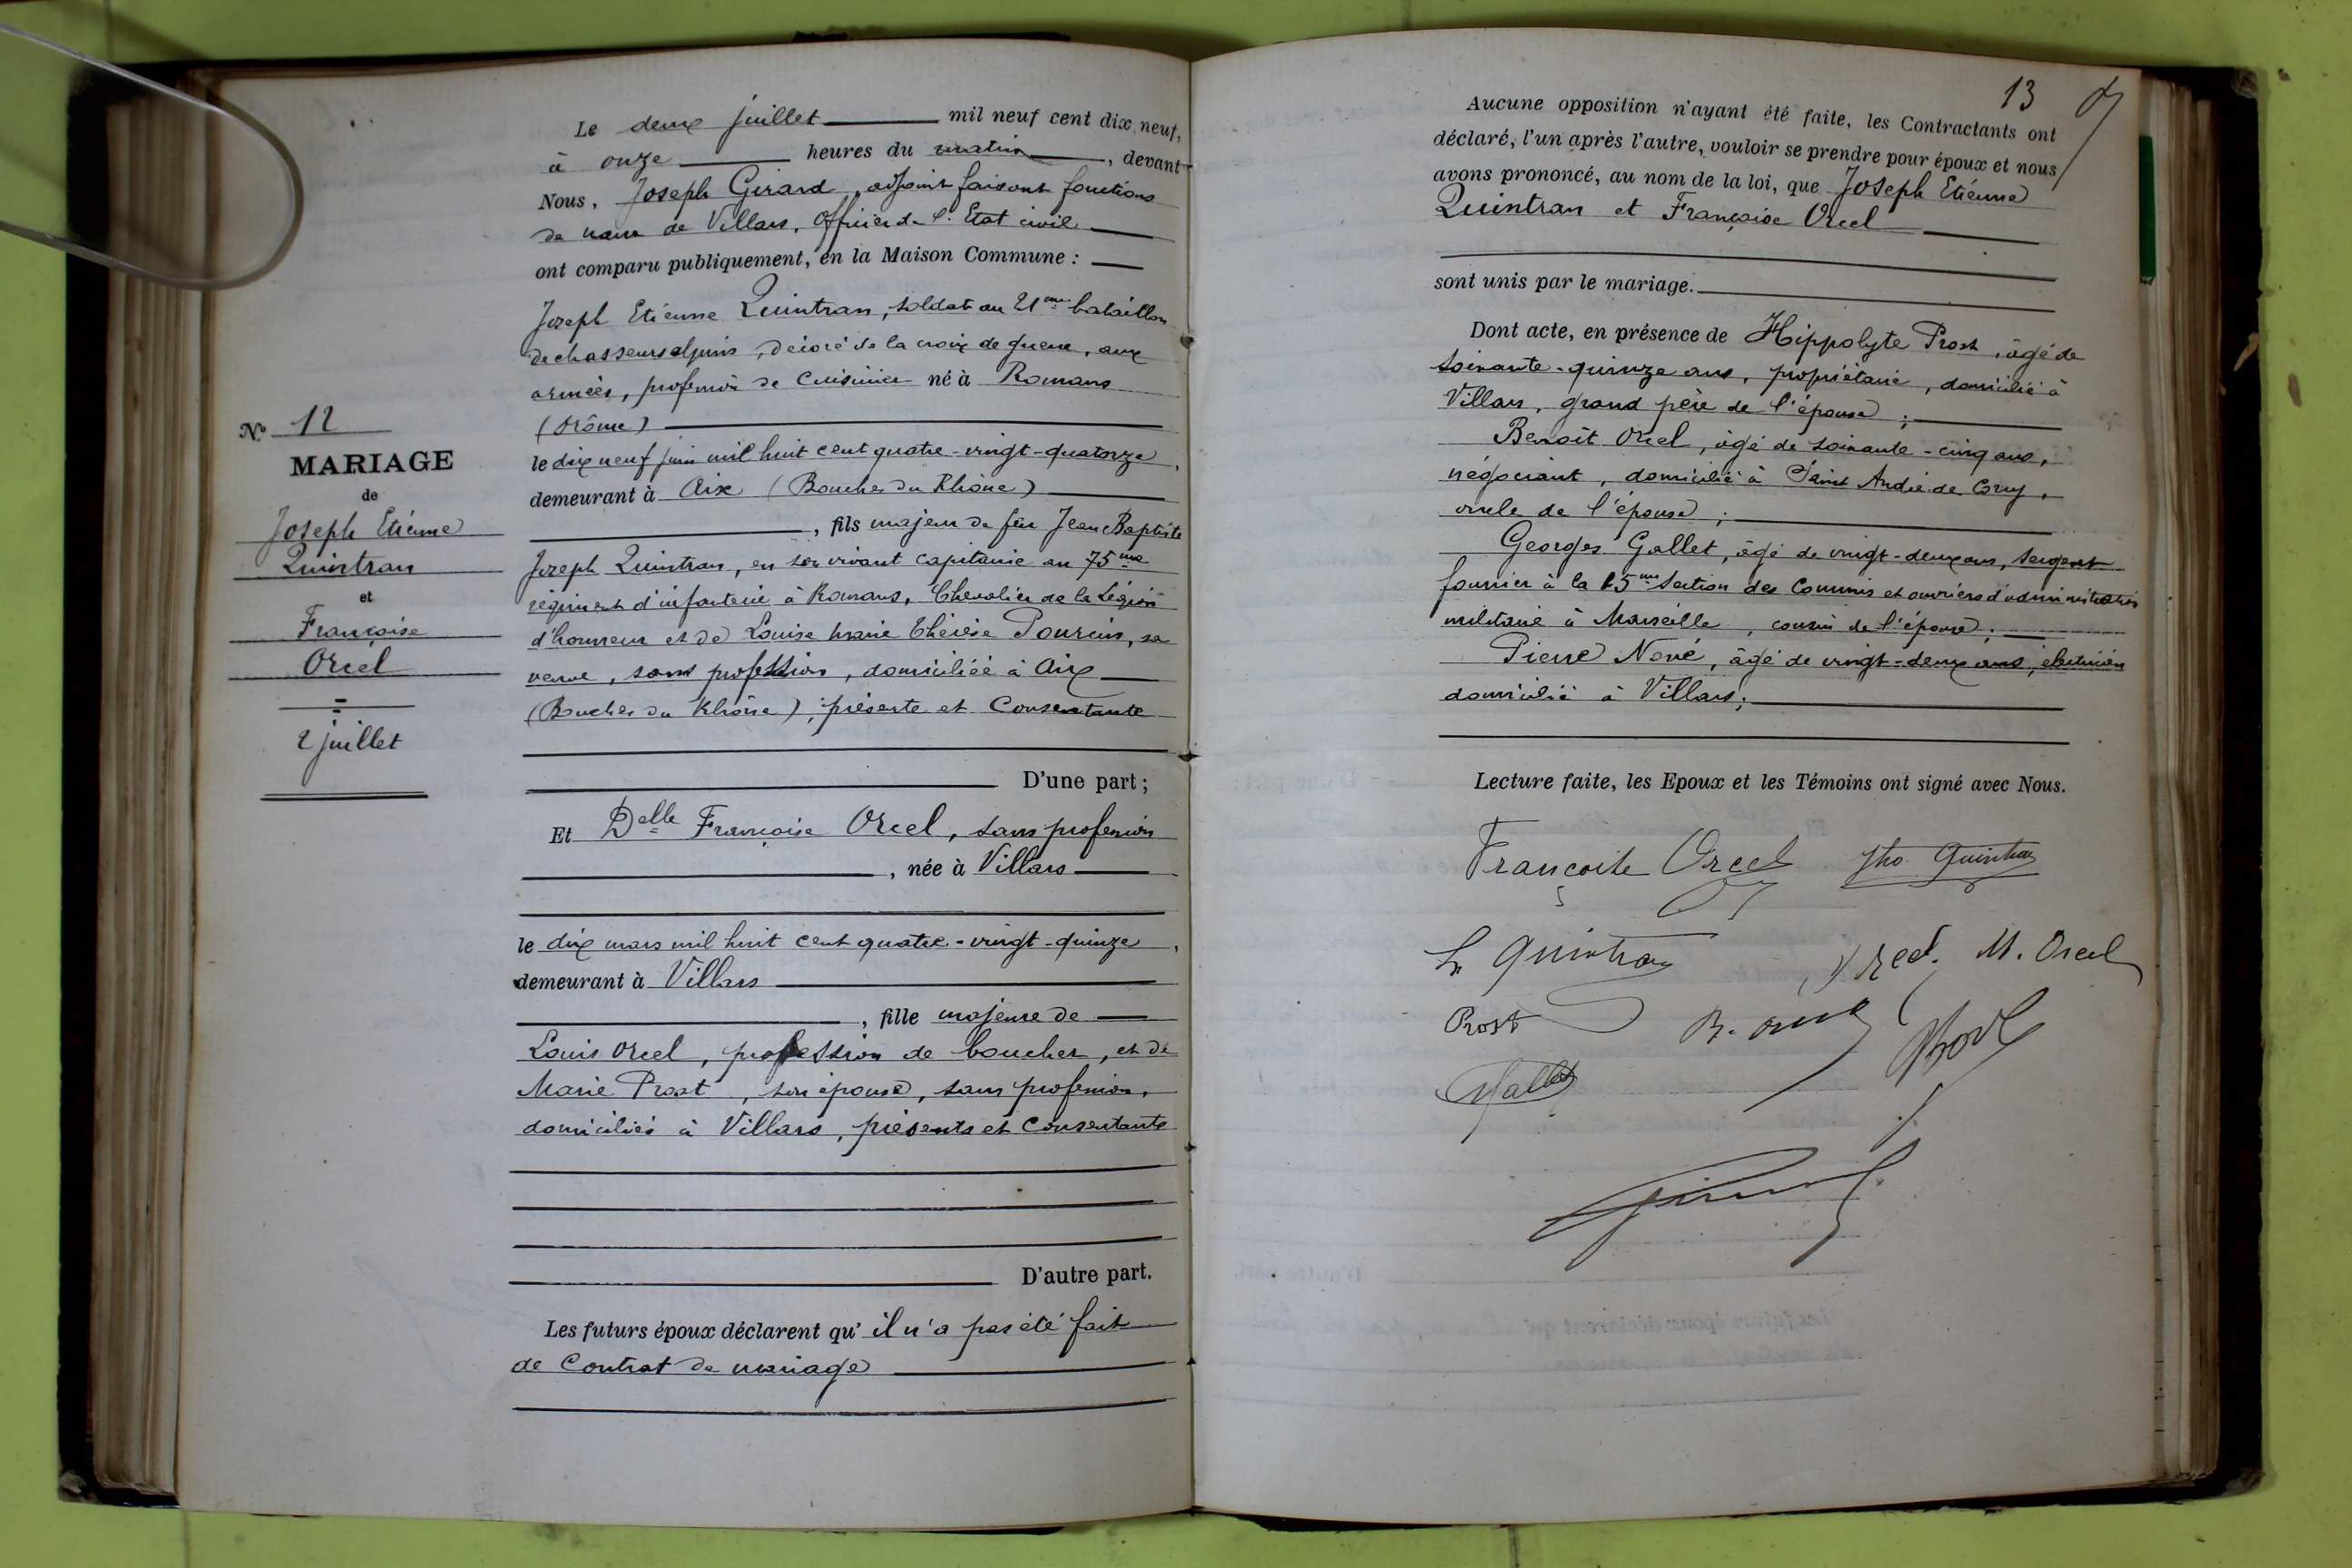 N° 12
MARIAGE
de
Joseph Etienne
Quintran
et
Françoise
Orcel
2 juillet
Le deux juillet mil neuf cent dix neuf,
à onze heures du matin, devant
Nous, Joseph Girard, adjoint faisant fonctions
de maire de Villars, officier de l'Etat civil
ont comparu publiquement, en la Maison Commune :
Joseph Etienne Quintran, soldat au 21me bataillon
de chasseurs alpins, décoré de la croix de guerre, aux
armées, profession de cuisinier né à Romans
(Drôme)
le dix neuf juin mil huit cent quatre-vingt-quatorze,
demeurant à Aix (Bouches du Rhône)
, fils majeur de feu Jean Baptiste
Joseph Quintran, en son vivant capitaine au 75me
régiment d'infanterie à Romans, Chevalier de la Légion
d'honneur et de Louise Marie Thérèse Pourcin, sa
veuve, sans profession, domiciliée à Aix
(Bouches du Rhône), présente et consentante
D'une part ;
Et Delle Françoise Orcel, sans profession
, née à Villars
le dix mars mil huit cent quatre-vingt-quinze,
demeurant à Villars
, fille majeure de
Louis Orcel, profession de boucher, et de
Marie Prost, son épouse, sans profession,
domiciliés à Villars, présents et consentants
D'autre part.
Les futurs époux déclarent qu' il n'a pas été fait
de contrat de mariage
13
Aucune opposition n'ayant été faite, les Contractants ont
déclaré, l'un après l'autre, vouloir se prendre pour époux et nous
avons prononcé, au nom de la loi, que Joseph Etienne
Quintran et Françoise Orcel
sont unis par le mariage.
Dont acte, en présence de Hippolyte Prost, âgé de
soixante-quinze ans, propriétaire, domicilié à
Villars, grand père de l'épouse ;
Benoit Orcel, âgé de soixante-cinq ans,
négociant, domicilié à Saint André de Corcy,
oncle de l'épouse ;
Georges Gallet, âgé de vingt-deux ans, sergent
fourrier à la 15me section des Commis et ouvriers d'administration
militaire à Marseille, cousin de l'épouse ;
Pierre Nové, âgé de vingt-deux ans, électricien
domicilié à Villars ;
Lecture faite, les Epoux et les Témoins ont signé avec Nous.
Françoise Orcel Jho Quintran
Quintran Orcel M. Orcel
Prost B. Orcel
Gallet
Girard